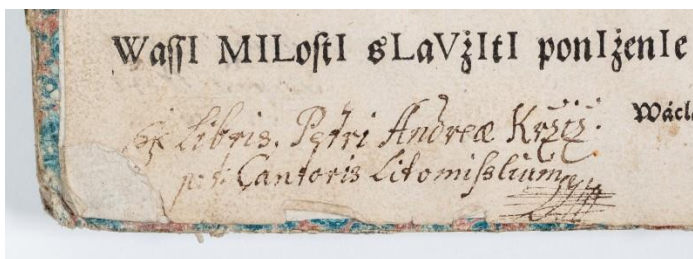 WaſſI MILoſtI sLaVžItI ponIženIe
Wácl
Ex Libris. Petri Andreæ Krziz.
p. t. Cantoris Litomiſslium